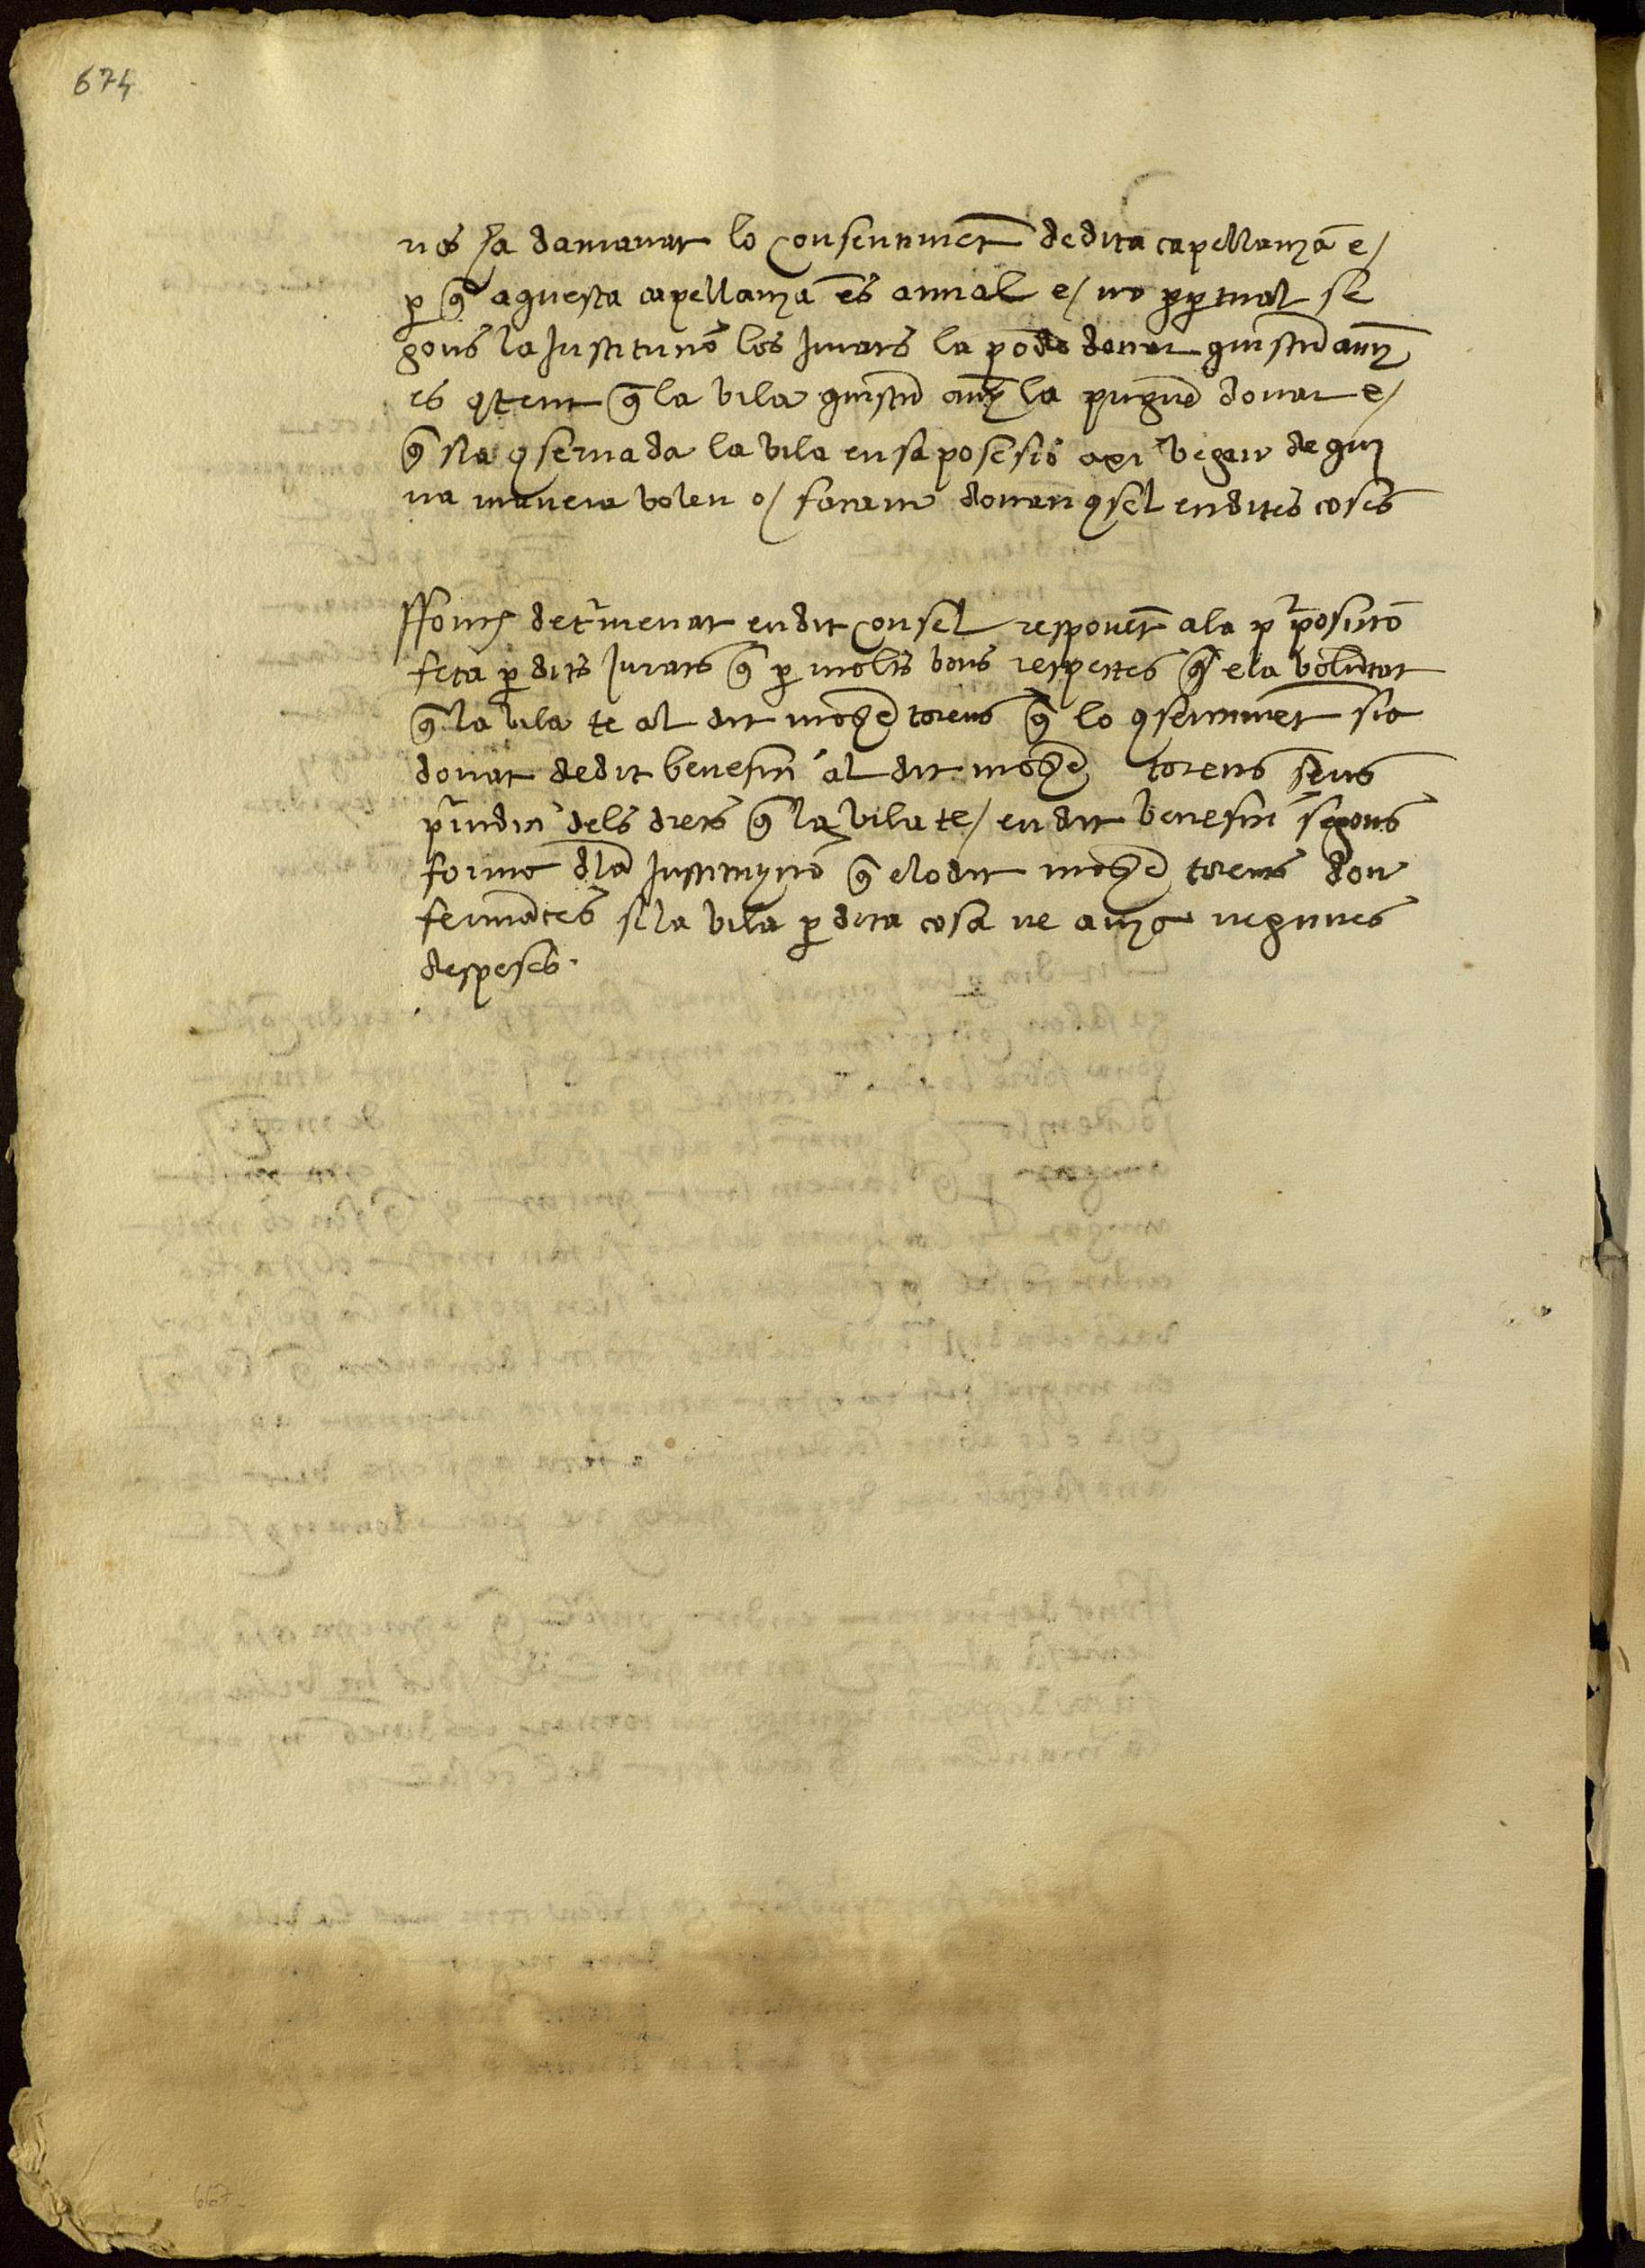 674
nos ha damanat lo Consentiment de dita capellanza e/
per que aquesta capellanza es annal e/ no perpetual se
gons la Institutio los Jurats la poden donar quiscun any
es content que la vila quiscun any la pugue donar e/
que sia conservada la vila en sa possesio axi vegau de qui
na manera voleu o/ façam donau consel en dites coses
ffonch determenat en dit Consel responent a la propositio
feta per dits Jurats que per molts bons respectes que e la voluntat
que la vila te al dit mossen torens que lo consentiment sia
donat de dit benefisi al dit mossen torens sens
prejudisi dels drets que la vila te/ en dit benefisi segons
forma dela Institutyio que e lo dit mossen torens don
fermances si la vila per dita cosa ne avya negunes
despeses.
667